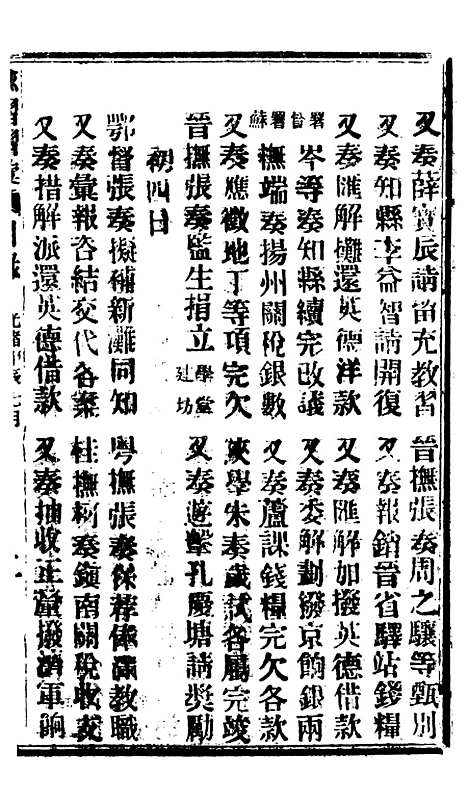 又奏薛寶辰請留充教習
晉撫張奏周之驤等甄別
又奏知縣李益智請開復
又奏報銷晉省驛站錢糧
又奏匯解攤還英德洋款
又奏匯解加撥英德借款
署督岑等奏知縣續完改議
又奏委解劃撥京餉銀兩
署蘇撫端奏揚州關稅銀數
又奏蘆課錢糧完欠各款
又奏應徵地丁等項完欠
陝學朱奏歲試各屬完竣
晉撫張奏監生捐立學堂建坊
又奏遊擊孔慶塘請獎勵
初四日
鄂督張奏擬補新灘同知
粵撫張奏保荐俸滿教職
又奏彙報咨結交代各案
桂撫柯奏鎮南關稅收支
又奏措解派還英德借款
又奏抽收正章撥濟軍餉
目錄
光緒甲辰七月